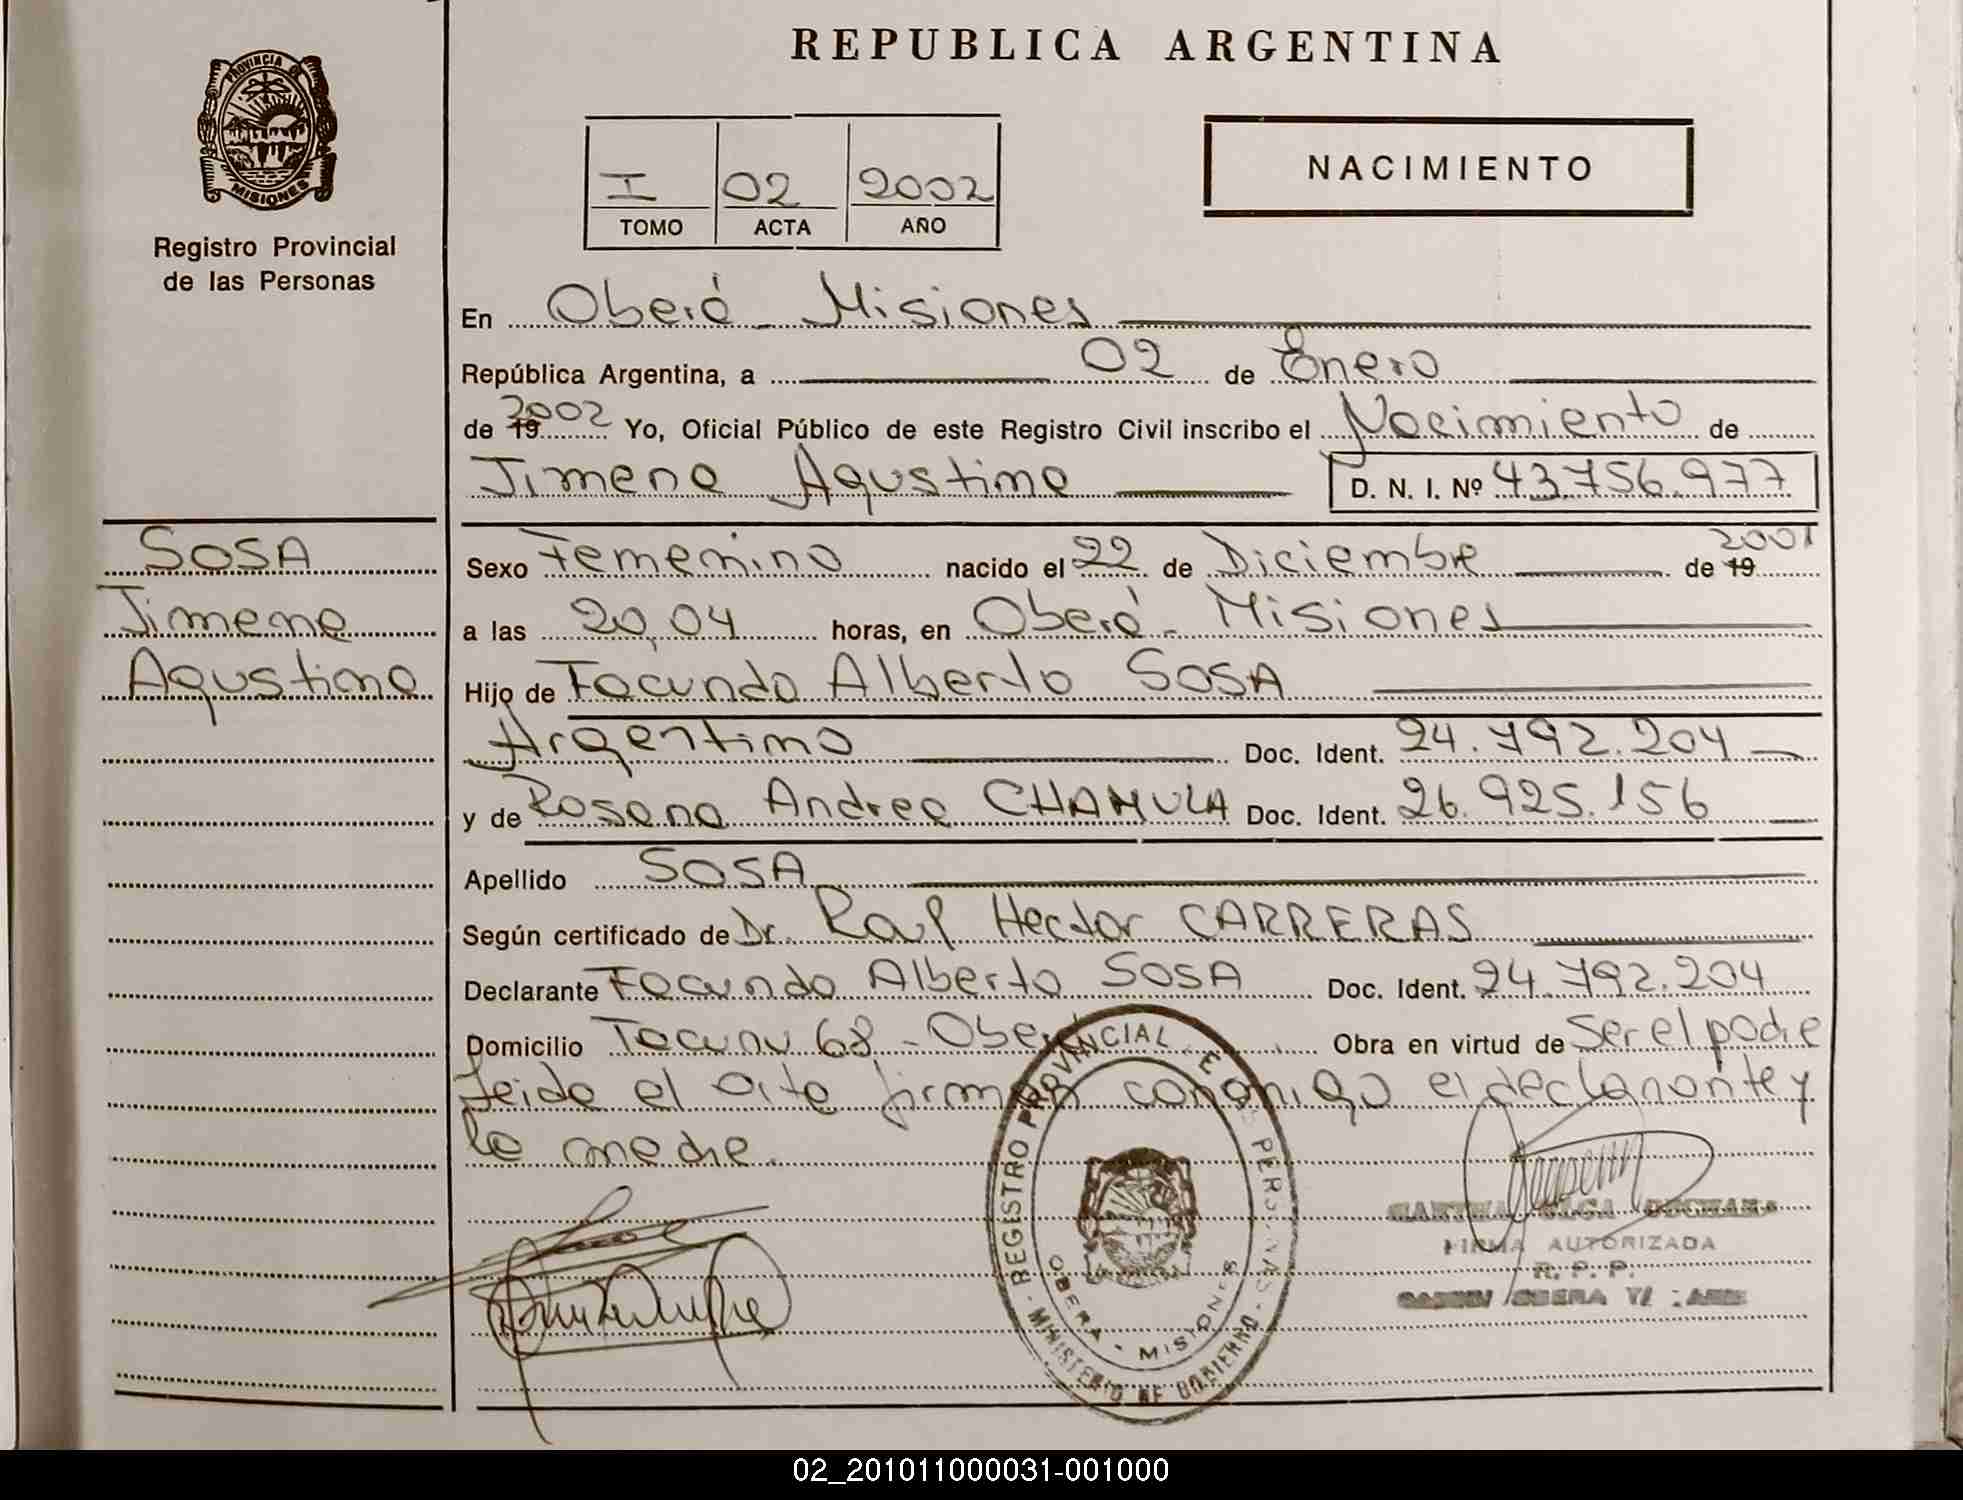 REPUBLICA ARGENTINA
PROVINCIA DE
MISIONES
Registro Provincial
de las Personas
I 02 2002
TOMO ACTA AÑO
NACIMIENTO
En Oberá - Misiones
República Argentina, a 02 de Enero
de 19 2002 Yo, Oficial Público de este Registro Civil inscribo el Nacimiento de
Jimena Agustina D. N. I. Nº 43.756.977
SOSA
Jimena
Agustina
Sexo Femenino nacido el 22 de Diciembre de 19 2001
a las 20,04 horas, en Oberá - Misiones
Hijo de Facundo Alberto SOSA
Argentino Doc. Ident. 24.792.204
y de Rosana Andrea CHAMULA Doc. Ident. 26.925.156
Apellido SOSA
Según certificado de Dr. Raul Hector CARRERAS
Declarante Facundo Alberto SOSA Doc. Ident. 24.792.204
Domicilio Tacuru 68 - Oberá Obra en virtud de Ser el padre
Leida el acta firman conmigo el declarante y
la madre.
REGISTRO PROVINCIAL DE LAS PERSONAS
MINISTERIO DE GOBIERNO
OBERA - MISIONES
MARTHA OLGA
FIRMA AUTORIZADA
R. P. P.
OBERA
02_201011000031-001000